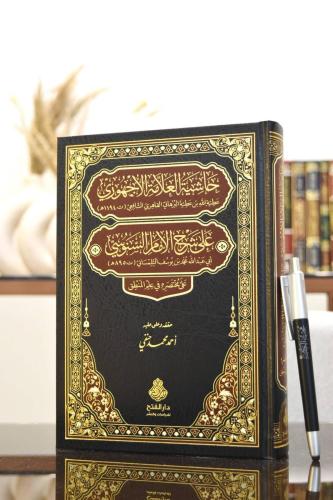 حاشية العلامة الأجهوري
عطية الله بن عطية البرهاني القاهري الشافعي (ت ١١٩٤هـ)
على شرح الإمام السنوسي
أبي عبد الله محمد بن يوسف التلمساني (ت ٨٩٥هـ)
على مختصره في علم المنطق
حققه وعلق عليه
أحمد محمد حنفي
دار الفتح
للدراسات والنشر